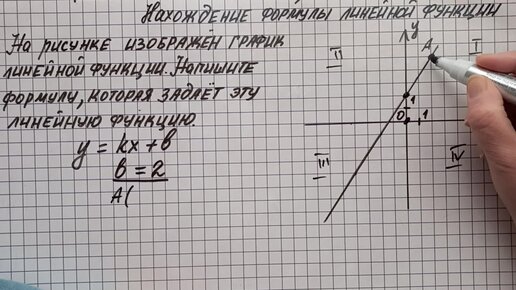 Нахождение формулы линейной функции
На рисунке изображён график
линейной функции. Напишите
формулу, которая задаёт эту
линейную функцию.
y = kx + b
b = 2
A(
y
A
I
II
1
0
1
III
IV